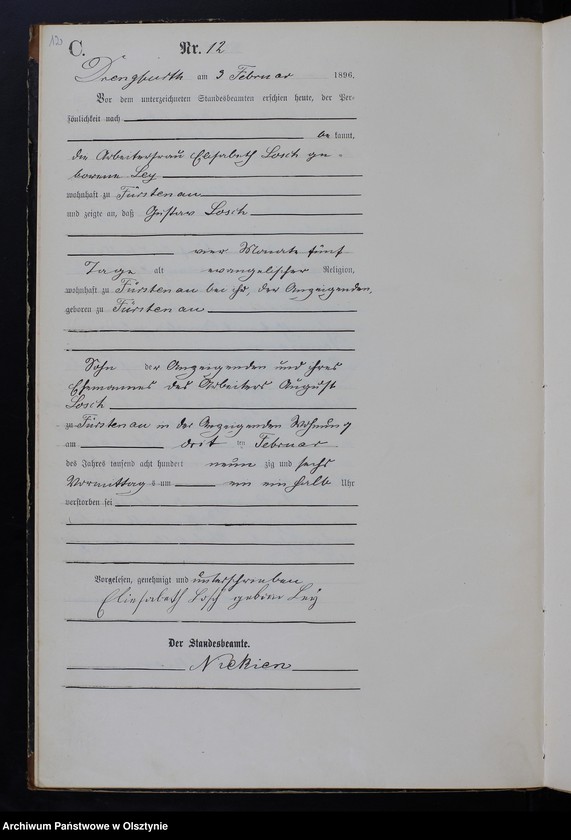 12
C.
Nr. 12
Drengfurth am 3 Februar 1896.
Vor dem unterzeichneten Standesbeamten erschien heute, der Per-
sönlichkeit nach
be kannt,
die Arbeiterfrau Elisabeth Losch ge-
borene Ley
wohnhaft zu Fürstenau
und zeigte an, daß Gustav Losch
vier Monate fünf
Tage alt evangelischer Religion,
wohnhaft zu Fürstenau bei ihr, der Anzeigenden,
geboren zu Fürstenau
Sohn der Anzeigenden und ihres
Ehemannes des Arbeiters August
Losch
zu Fürstenau in der Anzeigenden Wohnung
am ten Februar
des Jahres tausend acht hundert neun zig und sechs
Vormittags um ein halb Uhr
verstorben sei
Vorgelesen, genehmigt und unterschrieben
Eliesabeth Losch geborne Ley
Der Standesbeamte.
Archiwum Państwowe w Olsztynie